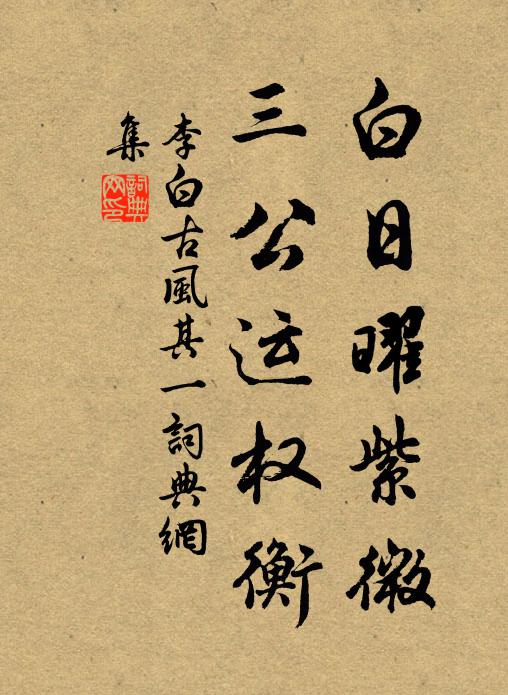 白日曜紫微
三公运权衡
李白古風其一詞典網
集
詞典網印